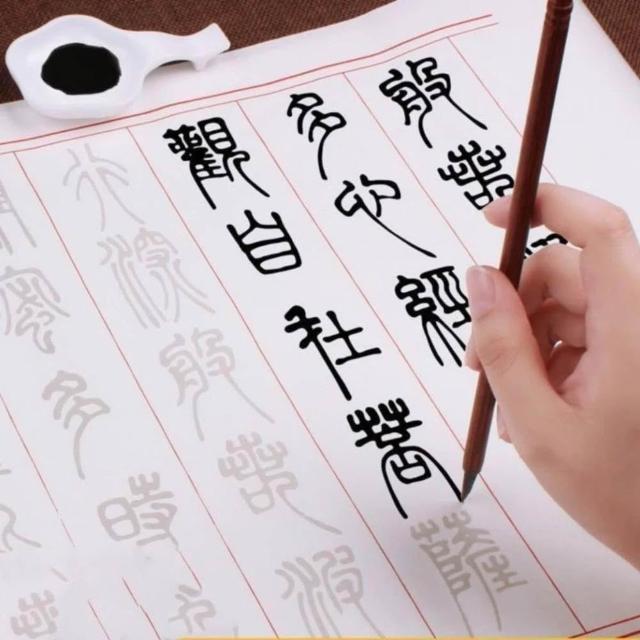 般若
多心經
觀自在菩薩
行深般若波
蜜多時